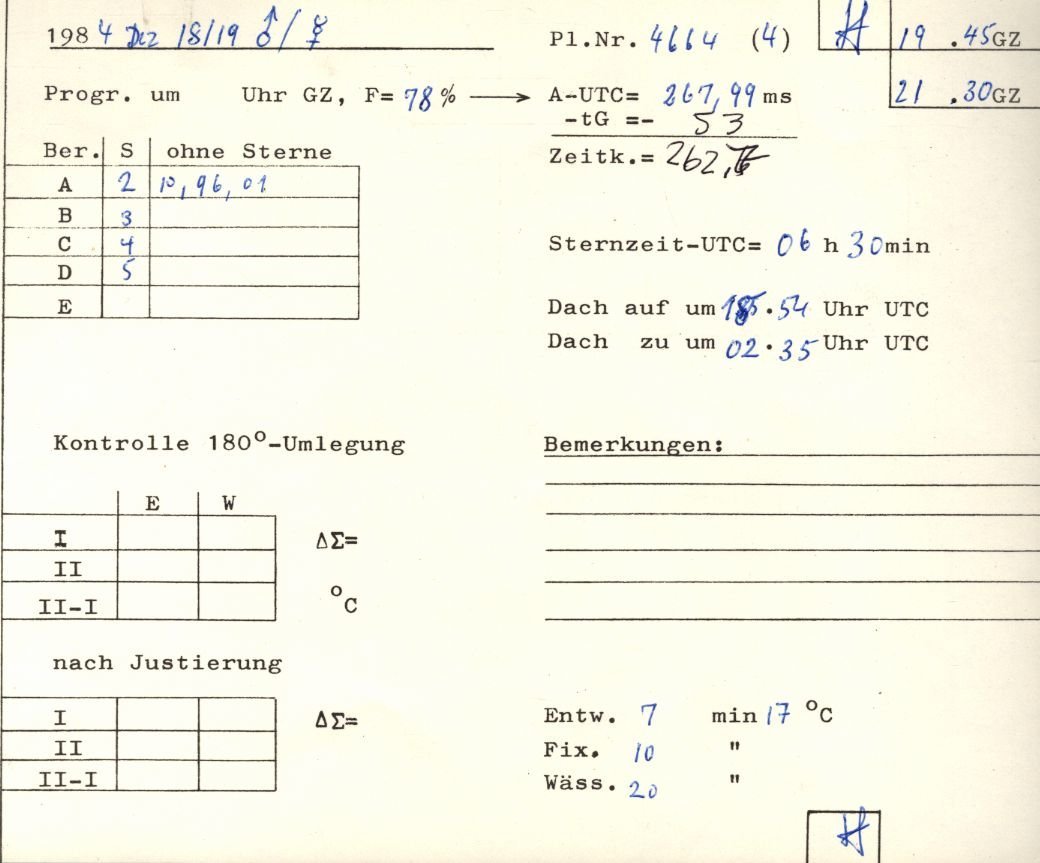 1984 Dez 18/19 ♂/☿ Pl.Nr. 4664 (4) 19 .45GZ
Progr. um Uhr GZ, F= 78% → A-UTC= 267,99 ms 21 .30GZ
-tG =- 53
Ber. S ohne Sterne Zeitk.= 262,
A 2 10, 96, 01
B 3
C 4 Sternzeit-UTC= 06 h 30min
D 5
E Dach auf um .54 Uhr UTC
Dach zu um 02.35 Uhr UTC
Kontrolle 180°-Umlegung Bemerkungen:
E W
I ΔΣ=
II
II-I °C
nach Justierung
I ΔΣ= Entw. 7 min 17 °C
II Fix. 10 "
II-I Wäss. 20 "